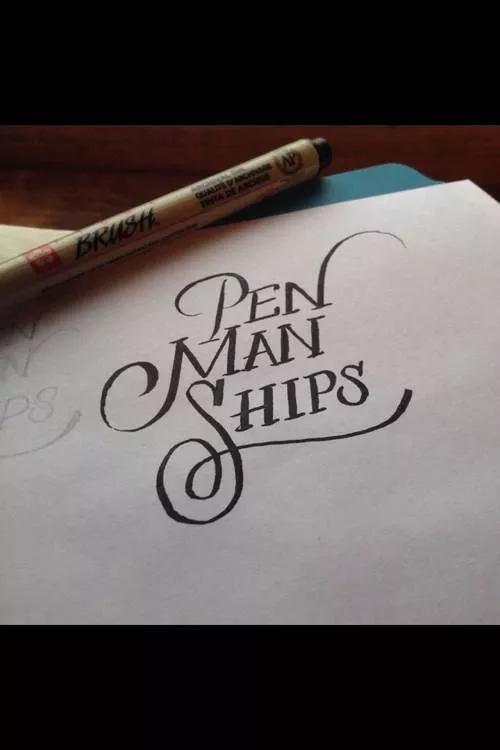 BRUSH
QUALITE D'ARCHIVES
TINTA DE ARCHIVO
AP
PEN
MAN
SHIPS